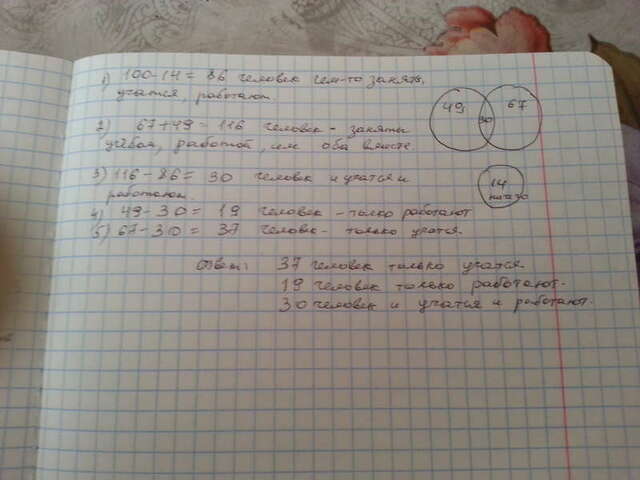 1) 100-14 = 86 человек чем-то заняты,
учатся, работают.
49
30
67
2) 67+49 - 116 человек - заняты
учёбой, работой, оба вместе
3) 116 - 86 = 30 человек и учатся и
работают.
14
4) 49 - 30 = 19 человек - толко работают
5) 67 - 30 = 37 человек - только учатся.
Ответ: 37 человек только учатся.
19 человек только работают.
30 человек и учатся и работают.